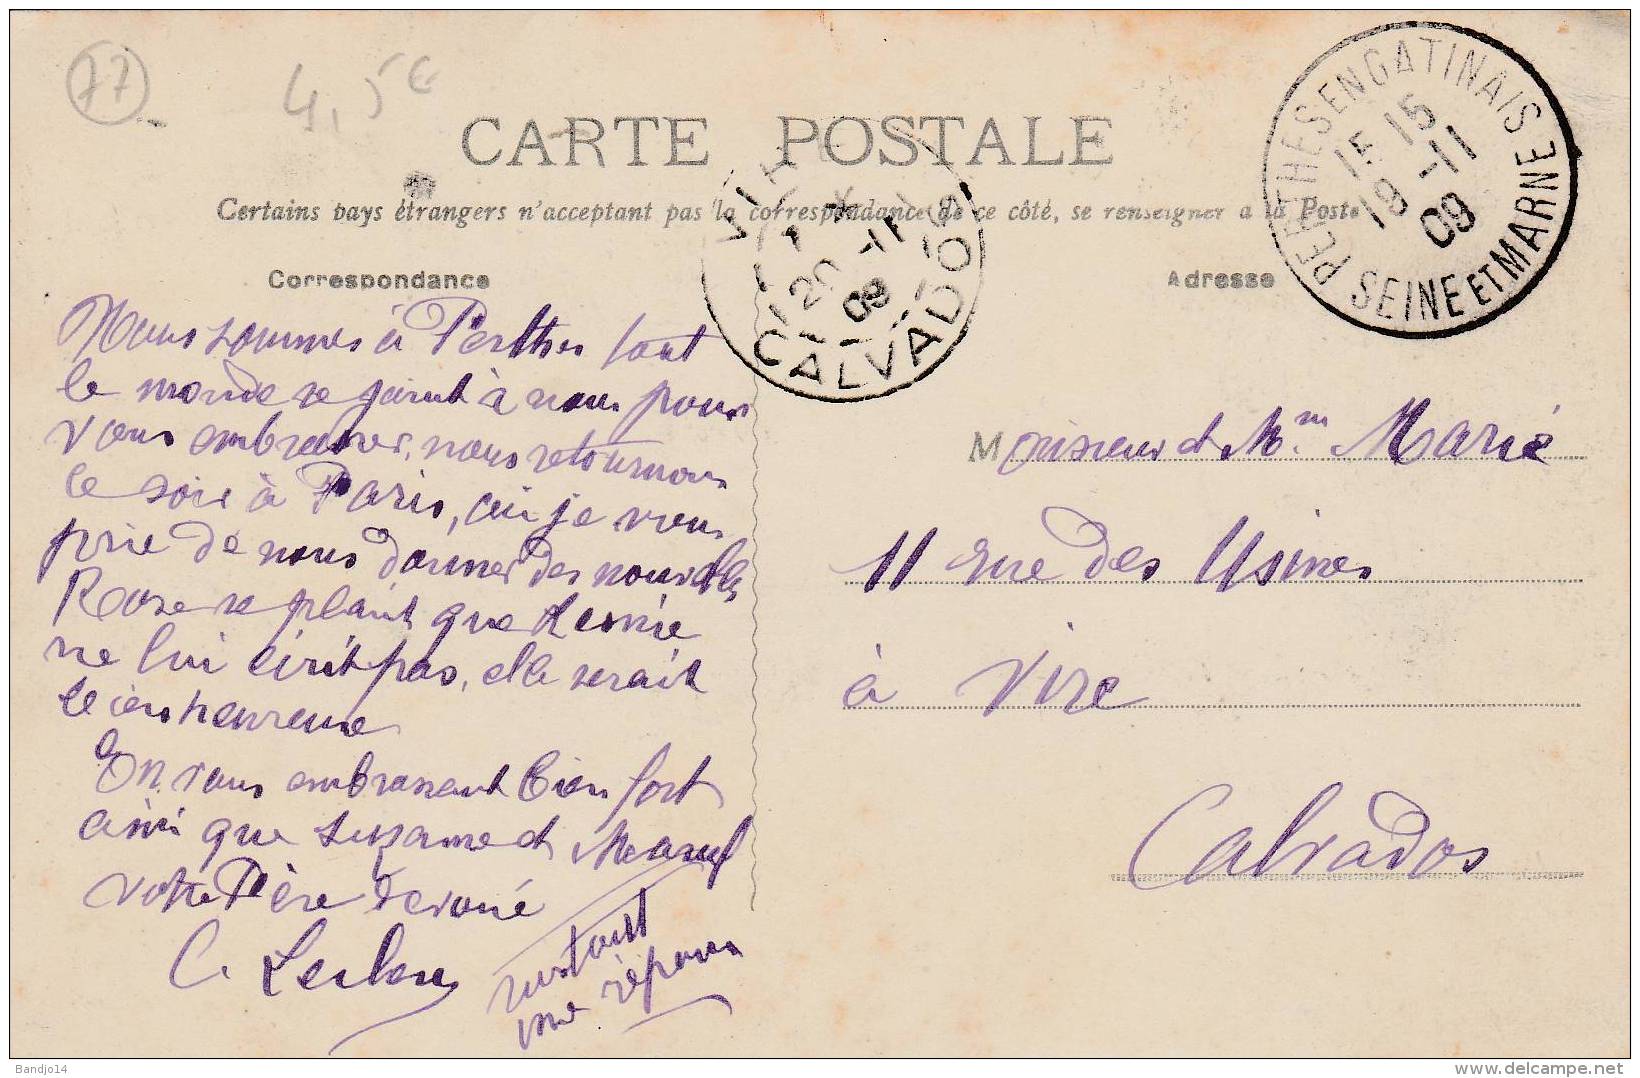 77
4,5€
CARTE POSTALE
Certains pays étrangers n'acceptent pas la correspondance de ce côté, se renseigner a la Poste
PERTHES EN GATINAIS
15 15
19 -11
09
SEINE ET MARNE
VIRE
20 -11
09
CALVADOS
Correspondance
Adresse
Nous sommes à Perthes tout
le monde se joint à nous pour
vous embrasser, nous retournons
le soir à Paris, je vous
prie de nous donner des nouvelles
Rose se plaint que
ne lui écrit pas, elle serait
bien heureuse
On vous embrassent bien fort
ainsi que Suzanne et Marcel
votre Père dévoué
C.
surtout
une répons
Monsieur et Mm Marie
11 rue des Usines
à Vire
Calvados
Bandjo14
delcampe.net